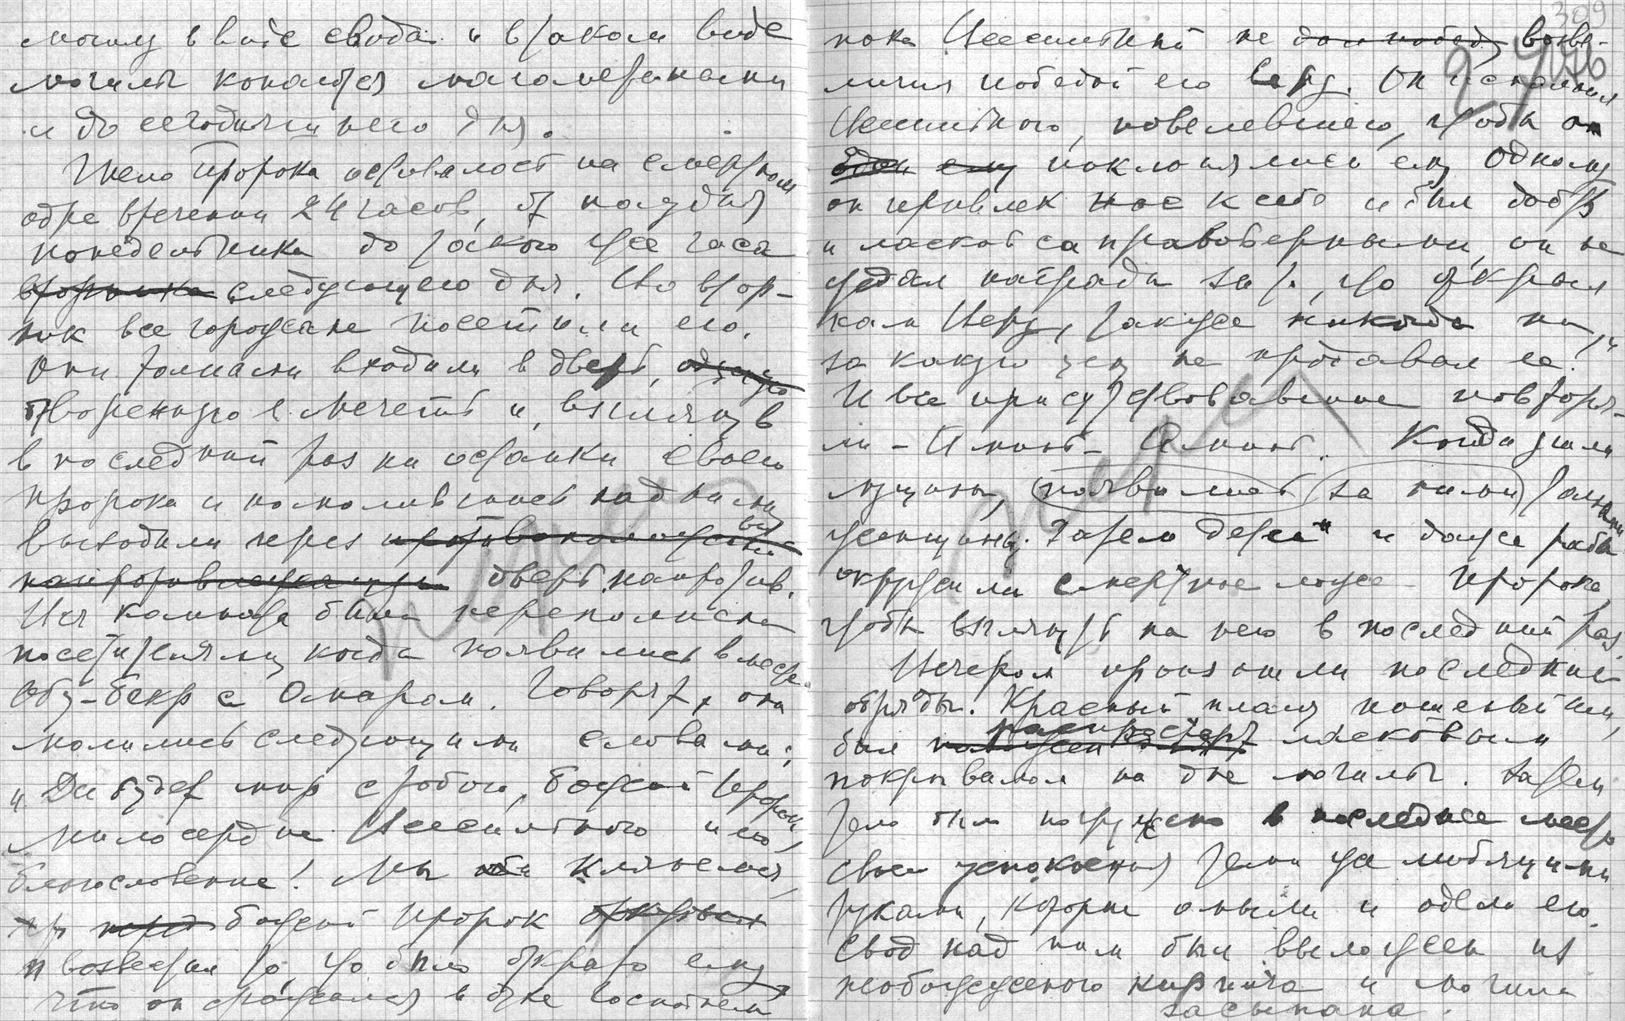 могилу в виде свода и в таком виде
могилы копаются магометанами
и до сегодняшнего дня.
Тело Пророка оставалось на смертном
одре в течении 24 часов, от полудня
понедельника до такого же часа
вторника следующего дня. Во втор-
ник все горожане посетили его.
Они толпами входили в дверь,
отворенную с мечеть и, взглянув
в последний раз на останки своего
пророка и помолившись над ними
выходили через противоположную
дверь напротив.
Вся комната была переполнена
посетителями, когда появились вместе
Абу-Бекр с Омаром. Говорят, они
молились следующими словами:
"Да будет мир с тобою, божий Пророк,
милосердие Всесильного и его
благословение! Мы клянемся,
что божий Пророк
возвестил то, что было открыто ему
что он сражался в духе господнем
309
276
пока Всесильный не дал победу возве-
личил победой его веру. Он исполнил
Всесильного, повелевшего, чтобы
ему поклонялись ему одному
он привлек нас к себе и был добр
и ласков с правоверными, он не
ждал награды за то, что открыл
нам Веру, также никогда ни
за какую цену не продавал ее!"
И все присутствовавшие повторя-
ли - Аминь - Аминь. Когда ушли
мужчины, появились за ними толпами
женщины. Затем дети и даже рабы
окружили смертное ложе Пророка,
чтобы взглянуть на него в последний раз.
Вечером произошли последние
обряды. Красный плащ
распростерт
был ласковым
покрывалом на дне могилы. Затем
тело было погружено в последнее место
своего успокоения теми же любящими
руками, которые омыли и одели его.
Свод над ним был выложен из
необожженного кирпича и могила
засыпана.